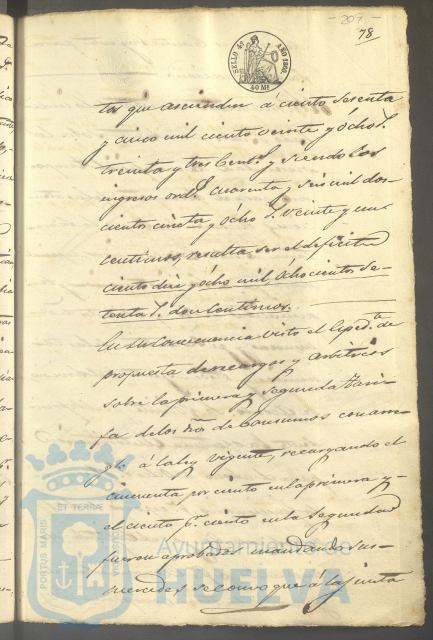 207.
78
SELLO 4º AÑO 1860.
40 Ms
tos que ascienden a ciento sesenta
y cinco mil ciento veinte y ócho r.
treinta y tres cent.s y siendo los
ingresos ord.s cuarenta y seis mil dos-
cientos cincta y ócho r. veinte y un
centimos, resulta ser el deficit de
ciento diez y ócho mil, óchocientos se-
tenta r. doce centimos.
En su consecuencia visto el Esped.te de
propuesta de recargos y arbitrios
sobre la primera y segunda tari-
fa de los dros de Consumos con arre-
glo á la ley vigente, recargando el
cincuenta por ciento en la primera y
el ciento p.r ciento en la segunda
fueron aprobados mandando sus
mercedes se convoque á la junta
PORTUS MARIS ET TERRAE CUSTODIA
Ayuntamiento de
HUELVA